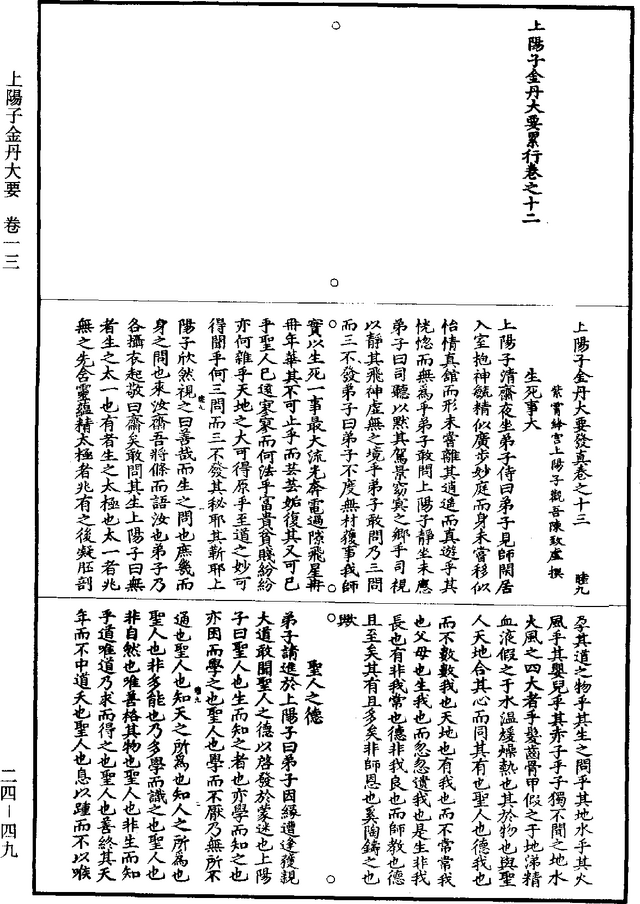 上陽子金丹大要 卷一三
二四—四九
上陽子金丹大要累行卷之十二
上陽子金丹大要發真卷之十三 睦九
紫霄絳宮上陽子觀吾陳致虛撰
生死事大
上陽子清齋夜坐弟子侍曰弟子見師閑居
入室抱神毓精似廣步妙庭而身未嘗移似
怡情真舘而形未嘗離其逍遙而真遊乎其
恍惚而無為乎弟子敢問上陽子靜坐未應
弟子曰司聽以默其駕景窈冥之鄉乎司視
以靜其飛神虛無之境乎弟子敢問乃三問
而三不發弟子曰弟子不度無材獲事我師
實以生死一事最大流光奔電過隙飛星冉
冉年華其不可止乎而芸芸姤復其又可已
乎聖人已遠寥寥而何法乎富貴貧賤紛紛
亦何雜乎天地之大可得原乎至道之妙可
得聞乎何三問而三不發其秘耶其靳耶上
陽子欣然視之曰善哉而生之問也庶幾而
身之問也來汝齋吾將條而語汝也弟子乃
各攝衣起敬曰齋矣敢問其生上陽子曰無
者生之太一也有者生之太極也太一者兆
無之先含靈蘊精太極者兆有之後凝胚剖
孕其道之物乎其生之問乎其地水乎其火
風乎其嬰兒乎其赤子乎子獨不聞之地水
火風之四大者乎髮齒骨甲假之于地涕精
血液假之于水溫緩燥熱也其於物也與聖
人天地合其心而同其有也聖人也德我也
而不數數我也天地也有我也而不常常我
也父母也生我也而忽忽遺我也是生非我
長也有非我常也德非我良也而師教也德
且至矣其有且多矣非師恩也奚陶鑄之也
歟
聖人之德
弟子請進於上陽子曰弟子因緣遭逢獲親
大道敢聞聖人之德以啓發於蒙迷也上陽
子曰聖人也生而知之者也亦學而知之也
亦困而學之也聖人也學而不厭乃無所不
通也聖人也知天之所為也知人之所為也
聖人也非多能也乃多學而識之也聖人也
非自然也唯善格其物也聖人也非生而知
乎道唯道乃求而得之也聖人也善終其天
年而不中道夭也聖人也息以踵而不以喉